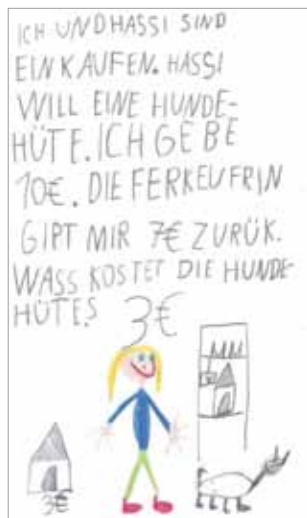 ICH UND HASSI SIND
EINKAUFEN. HASSI
WILL EINE HUNDE-
HÜTE. ICH GEBE
10€. DIE FERKEUFRIN
GIPT MIR 7€ ZURÜK.
WASS KOSTET DIE HUNDE-
HÜTE?
3€
3€